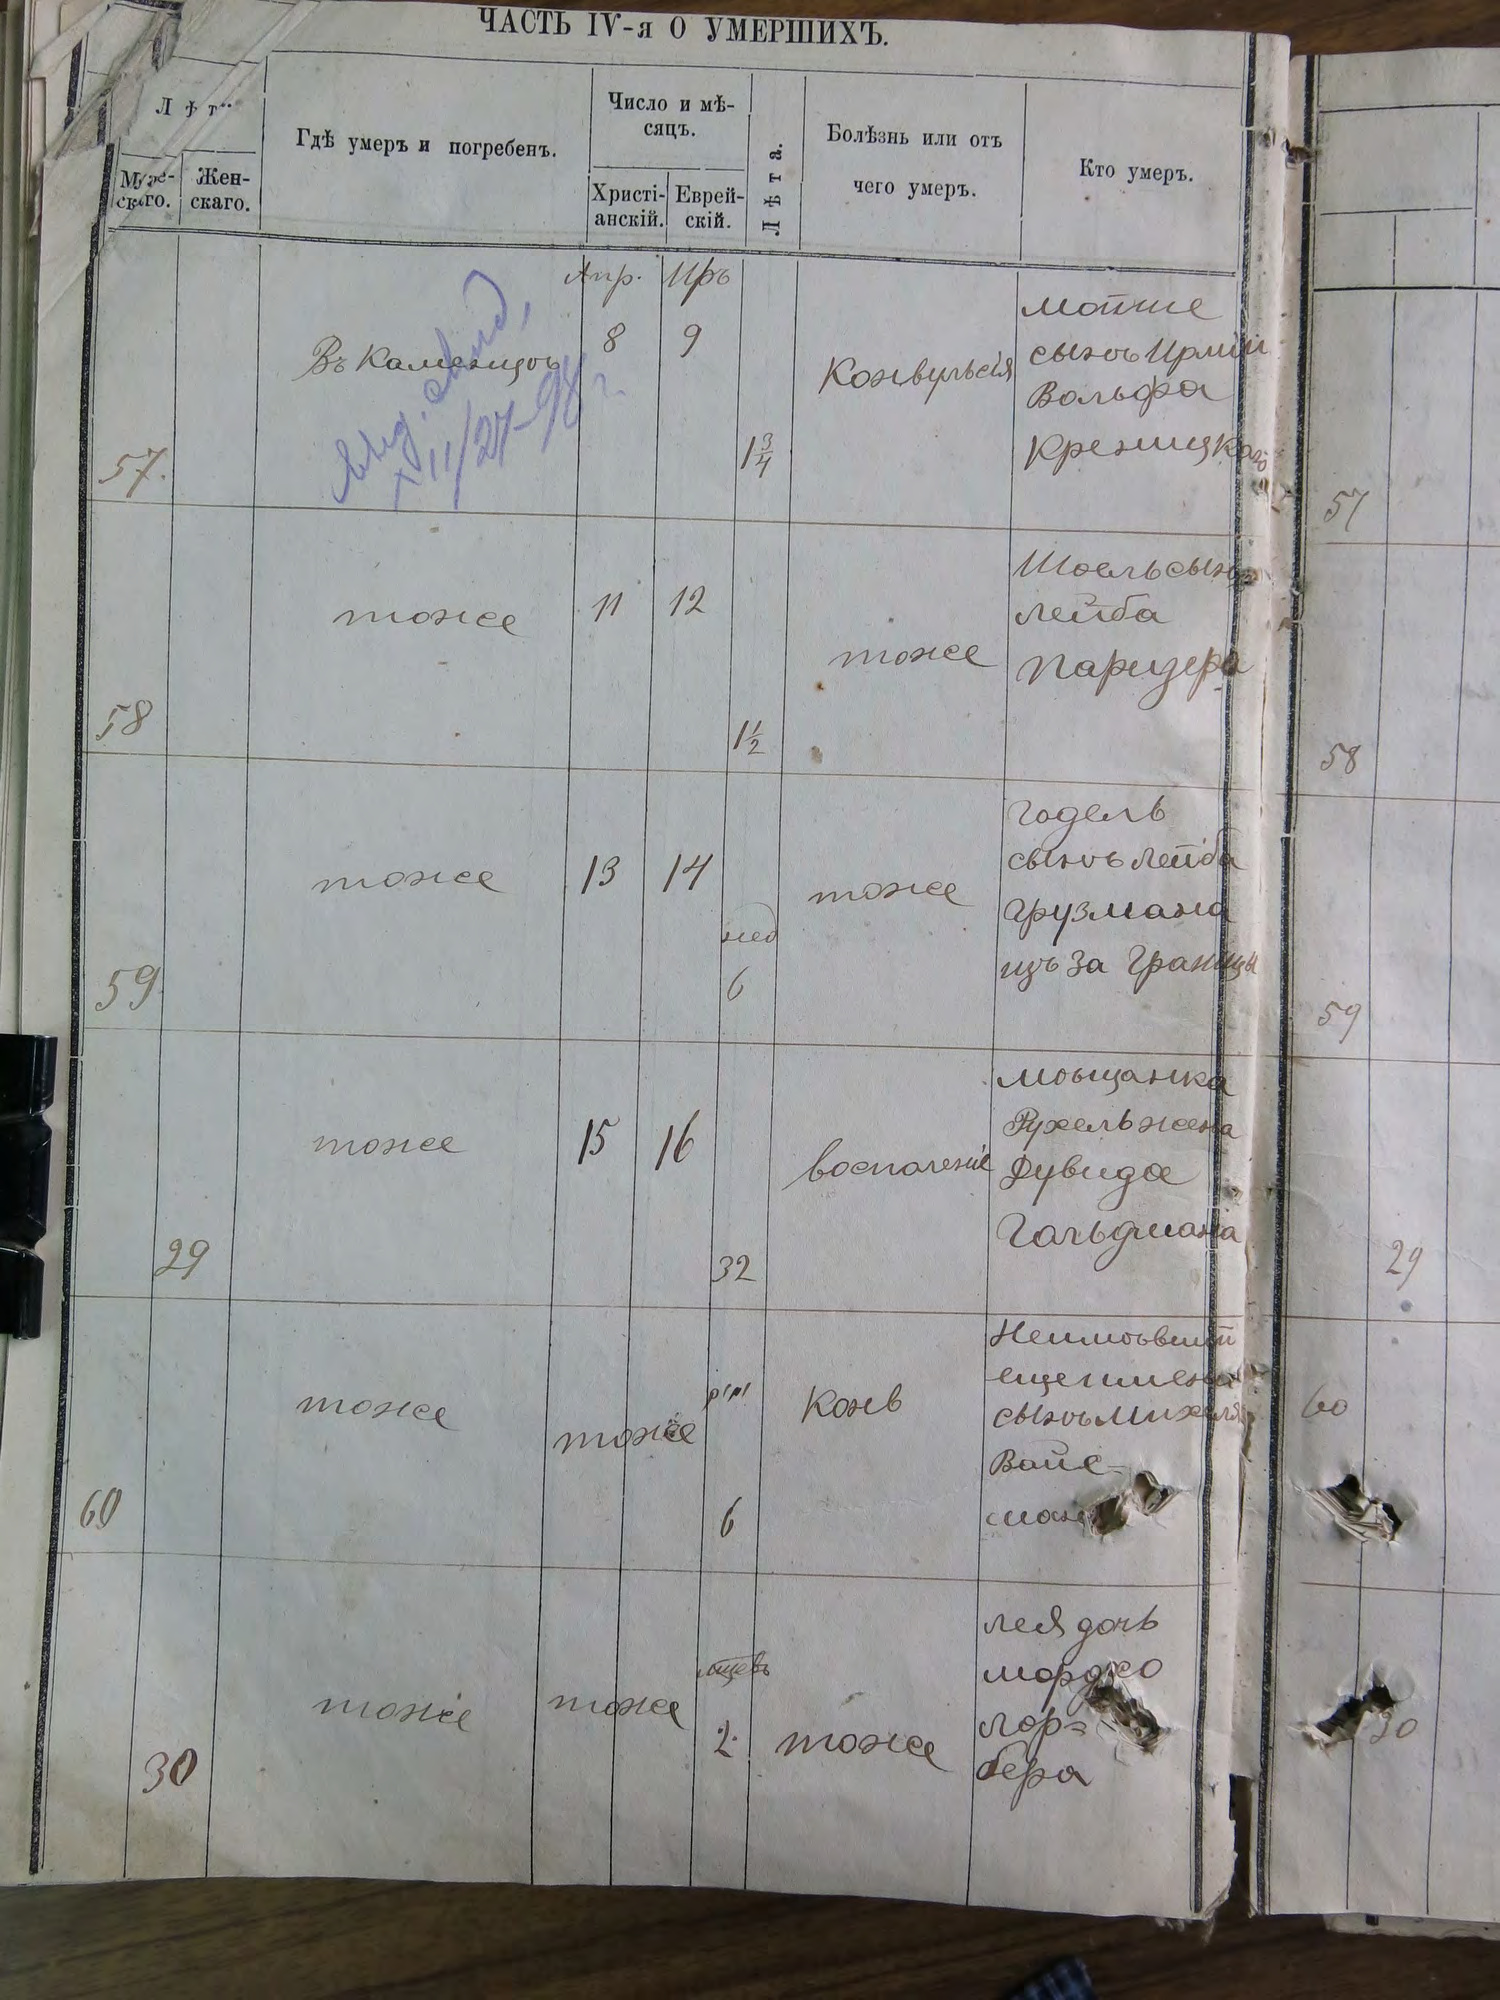 ЧАСТЬ IV-я О УМЕРШИХЪ.
Лѣт
Муже-
скаго.
Жен-
скаго.
Гдѣ умеръ и погребенъ.
Число и мѣ-
сяцъ.
Христі-
анскій.
Еврей-
скій.
Лѣта.
Болѣзнь или отъ
чего умеръ.
Кто умеръ.
57.
Въ Каменцѣ
XII/27-98 г.
Апр.
8
Иръ
9
1 3/4
Конвульсія
мотие
сынъ Ирміи
Вольфа
Креницкаго
57
58
тоже
11
12
1 1/2
тоже
Шоель сынъ
лейба
Паризера
58
59
тоже
13
14
нед
6
тоже
Годель
сынъ лейба
Грузмана
изъ за Границы
59
29
тоже
15
16
32
воспаленіе
мѣщанка
Рухель жена
Дувида
Гольдмана
29
60
тоже
тоже
6
Конв
Неимѣвшій
еще имени
сынъ Михеля
Вайс-
ман
60
30
тоже
тоже
мцевъ
2
тоже
лея дочь
мордко
лор=
бера
30